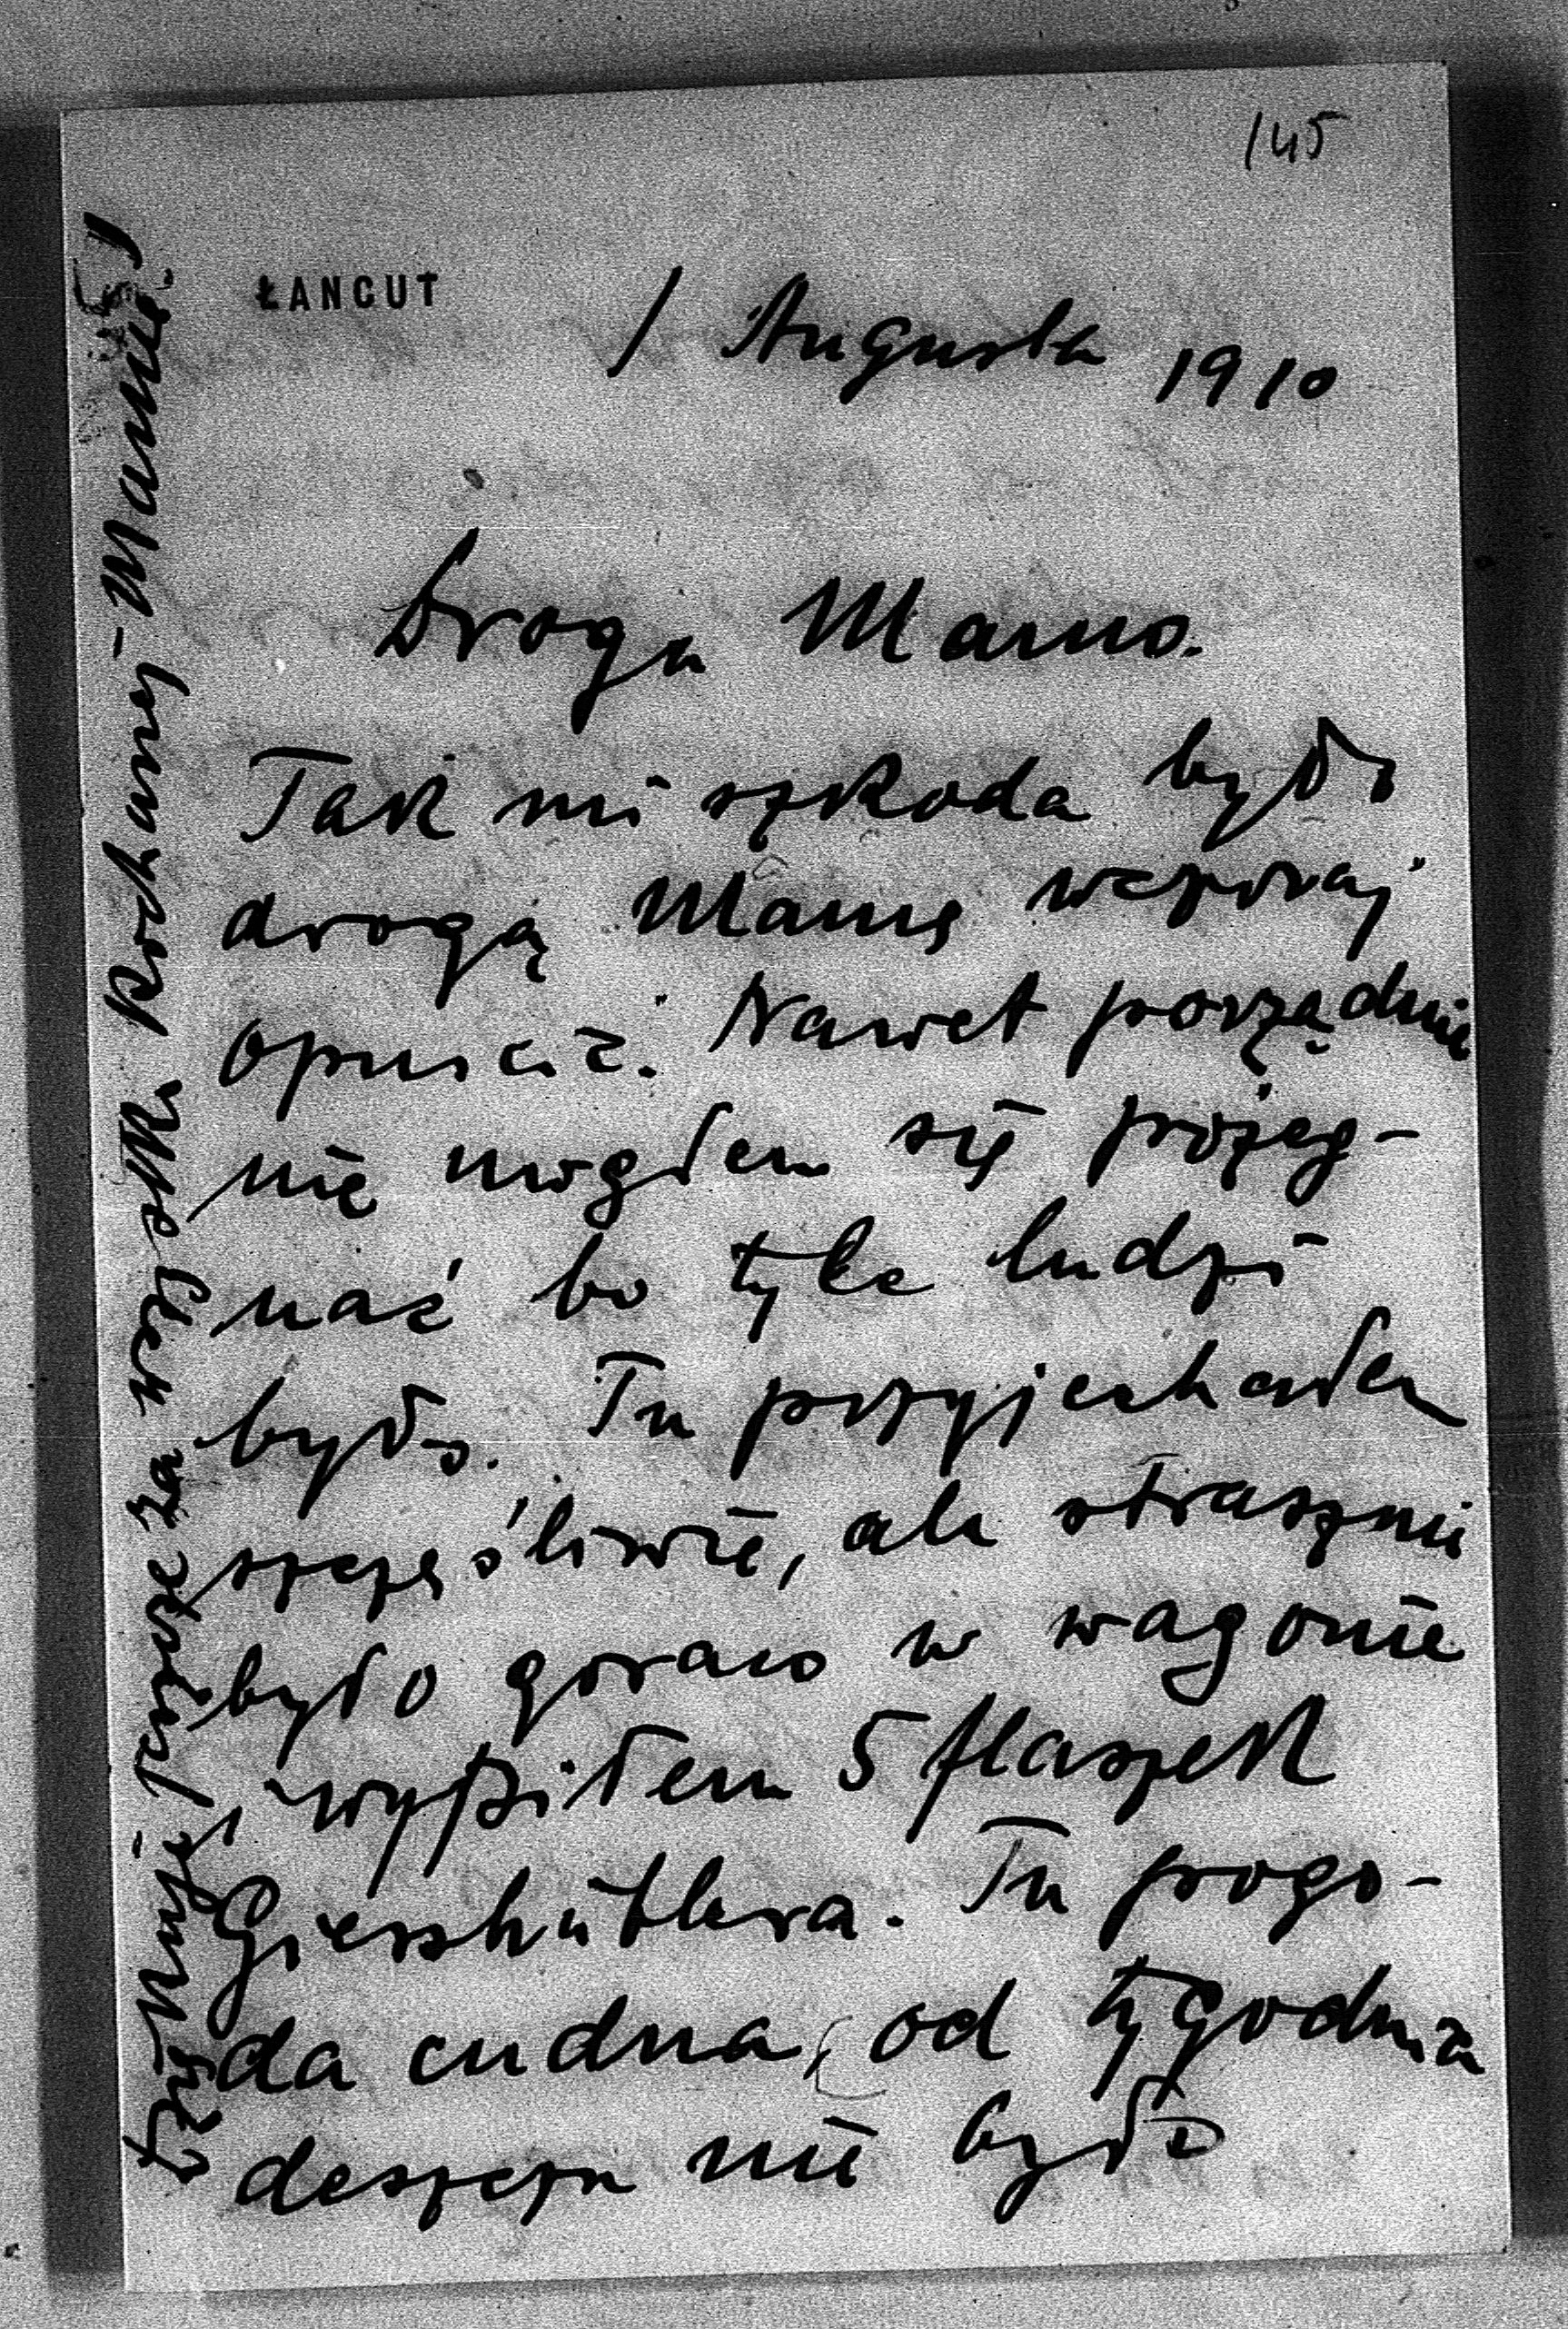 145
ŁANCUT
1 Augusta 1910
Droga Mamo.
Tak mi szkoda było
drogą Mamę wczoraj
opuścić. Nawet porządnie
nie mogłem się pożeg-
nać bo tyle ludzi
było. Tu przyjechałem
szczęśliwie, ale strasznie
było gorąco w wagonie
i wypiłem 5 flaszek
Gieshüblera. Tu pogo-
da cudna, od tygodnia
deszczu nie było
Dziękuję jeszcze za wszystko kochanej Mamie!